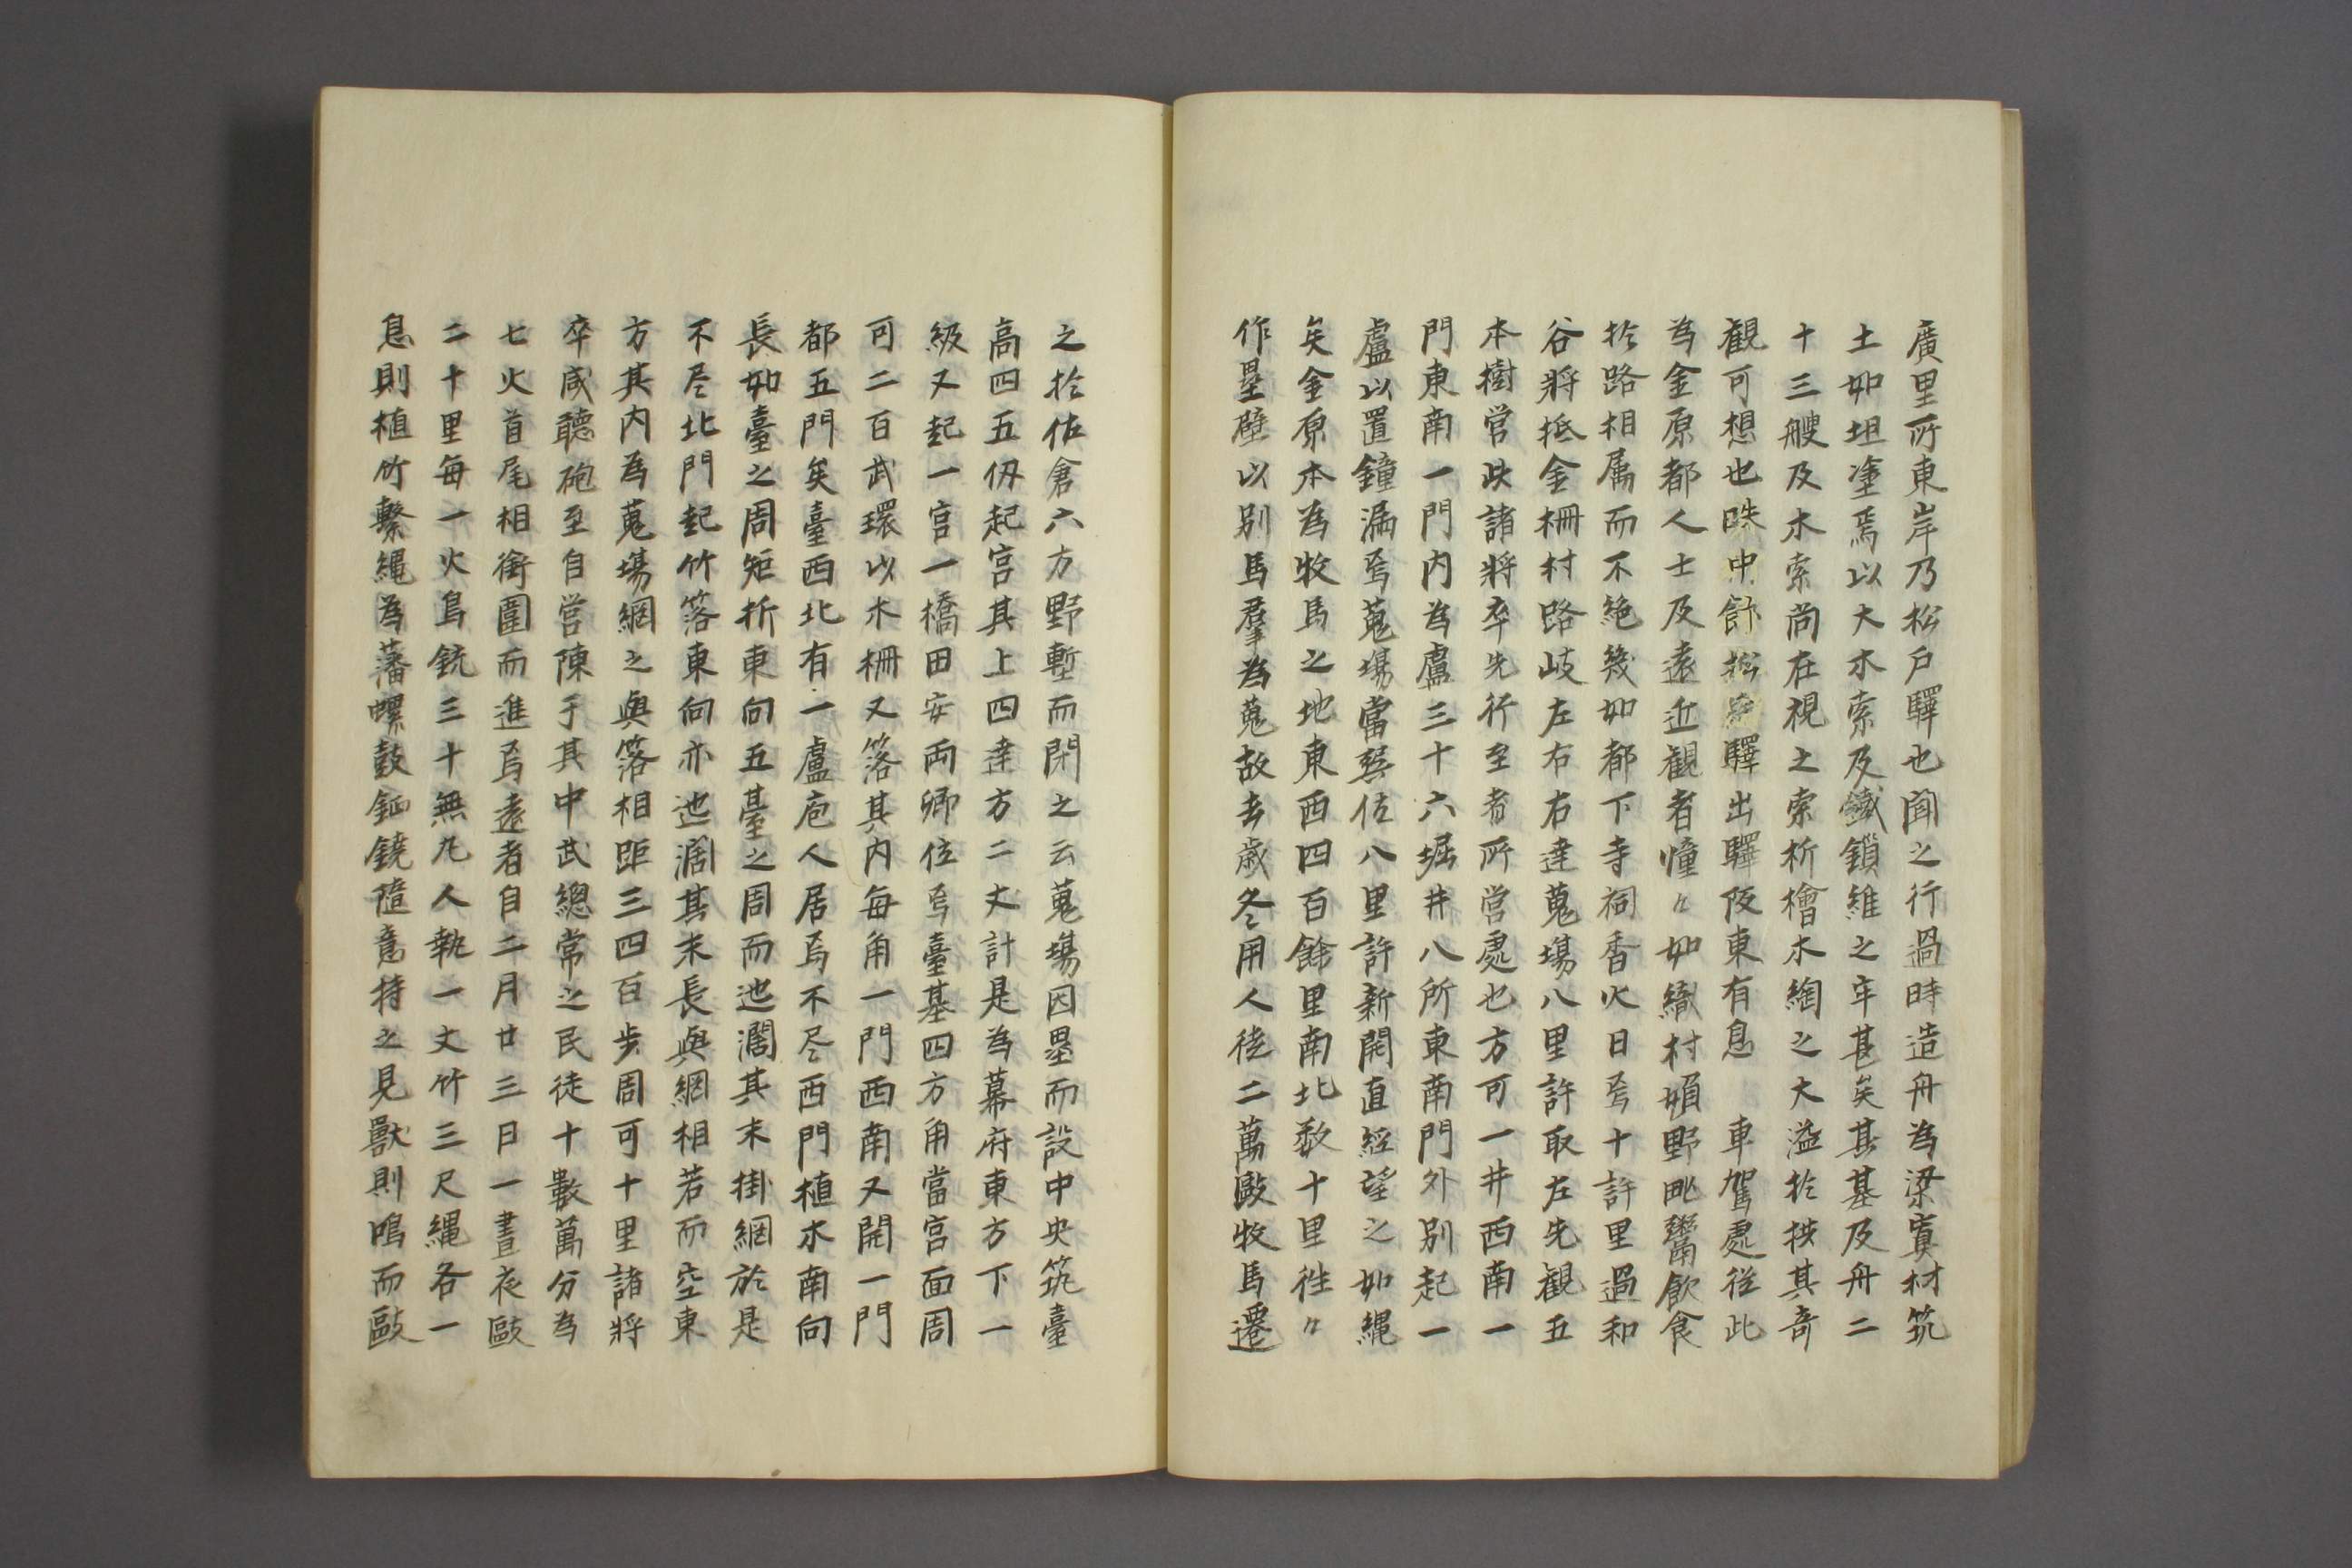 廣里所東岸乃松戶驛也聞之行過時造舟為梁實材筑
土如坦塗焉以大木索及鐵鎖維之牢甚矣其基及舟二
十三艘及木索尚在視之索析檜木綯之大溢於拱其奇
觀可想也昳中飰松戶驛出驛阪東有息　車駕處從此
為金原都人士及遠近觀者憧〻如織村頔野毗鬻飲食
於路相属而不絶幾如都下寺祠香火日焉十許里過和
谷將抵金柵村路岐左右右達蒐場八里許取左先觀五
本樹営此諸將卒先行至者所営處也方可一井西南一
門東南一門内為盧三十六堀井八所東南門外別起一
盧以置鐘漏焉蒐場當巽位八里許新開直經望之如縄
矣金原本為牧馬之地東西四百餘里南北数十里徃〻
作壘壁以別馬羣為蒐故去歳冬用人徒二萬敺牧馬遷
之於佐倉六方野塹而閉之云蒐場因壘而設中央筑臺
高四五仭起宮其上四達方二丈計是為幕府東方下一
級又起一宮一橋田安両卿位焉臺基四方角當宮面周
可二百武環以木柵又落其内每角一門西南又開一門
都五門矣臺西北有一盧庖人居焉不尽西門植木南向
長如臺之周矩折東向五臺之周而迤濶其末掛網於是
不尽北門起竹落東向亦迤濶其末長與網相若而空東
方其内為蒐場網之與落相距三四百步周可十里諸將
卒咸聽砲至自営陳于其中武總常之民徒十數萬分為
七火首尾相銜圍而進焉遠者自二月廿三日一晝夜敺
二十里每一火鳥銃三十無丸人執一丈竹三尺縄各一
息則植竹繫縄為藩螺鼓鉦鐃隨意持之見獸則鳴而敺